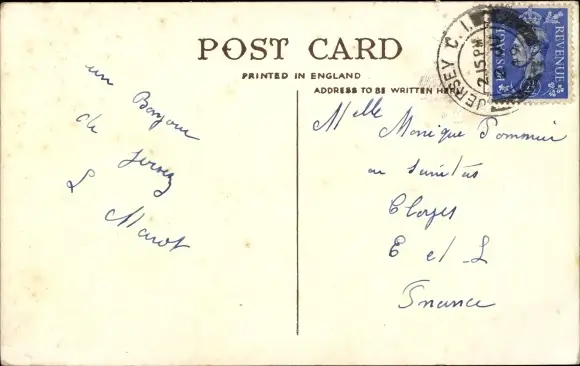 POST CARD
PRINTED IN ENGLAND
ADDRESS TO BE WRITTEN HERE
JERSEY C.I.
2.15 PM
REVENUE
un Bonjour
de Jersey
L Marot
Melle Monique Pommier
Cloyes
E et L
France